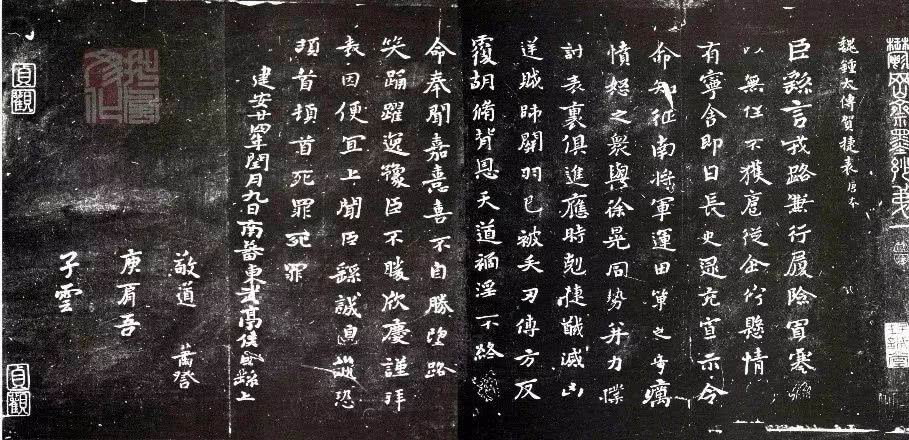 鬱岡齋墨妙第一
魏鍾太傅賀捷表唐本
臣繇言戎路兼行履險冒寒
以無任不獲扈從企佇懸情
有寧舍即日長史逯充宣示令
命知征南將軍運田單之奇厲
憤怒之衆與徐晃同勢并力撲
討表裏俱進應時剋捷馘滅凶
逆賊帥關羽已被矢刃傅方反
覆胡脩背恩天道禍淫不終
命奉聞嘉憙喜不自勝望路
笑踊躍逸豫臣不勝欣慶謹拜
表因便宜上聞臣繇誠惶誠恐
頓首頓首死罪死罪
建安廿四年閏月九日南蕃東武亭侯臣繇上
敬道
庾肩吾
子雲
貞觀
貞觀